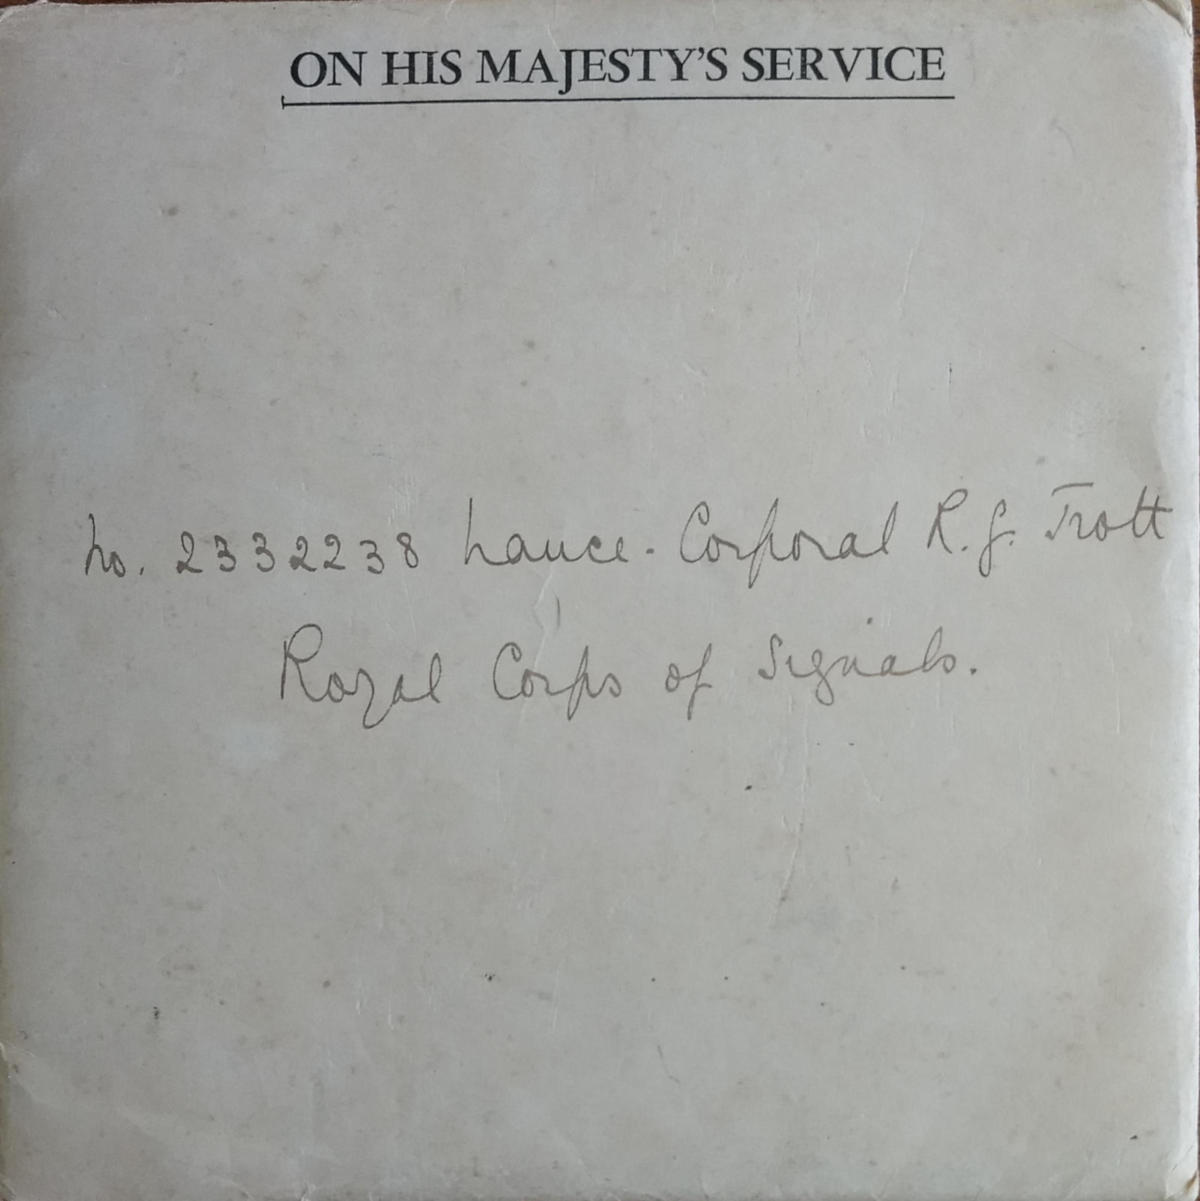 ON HIS MAJESTY'S SERVICE
No. 2332238 Lance-Corporal R.G. Trott
Royal Corps of Signals.